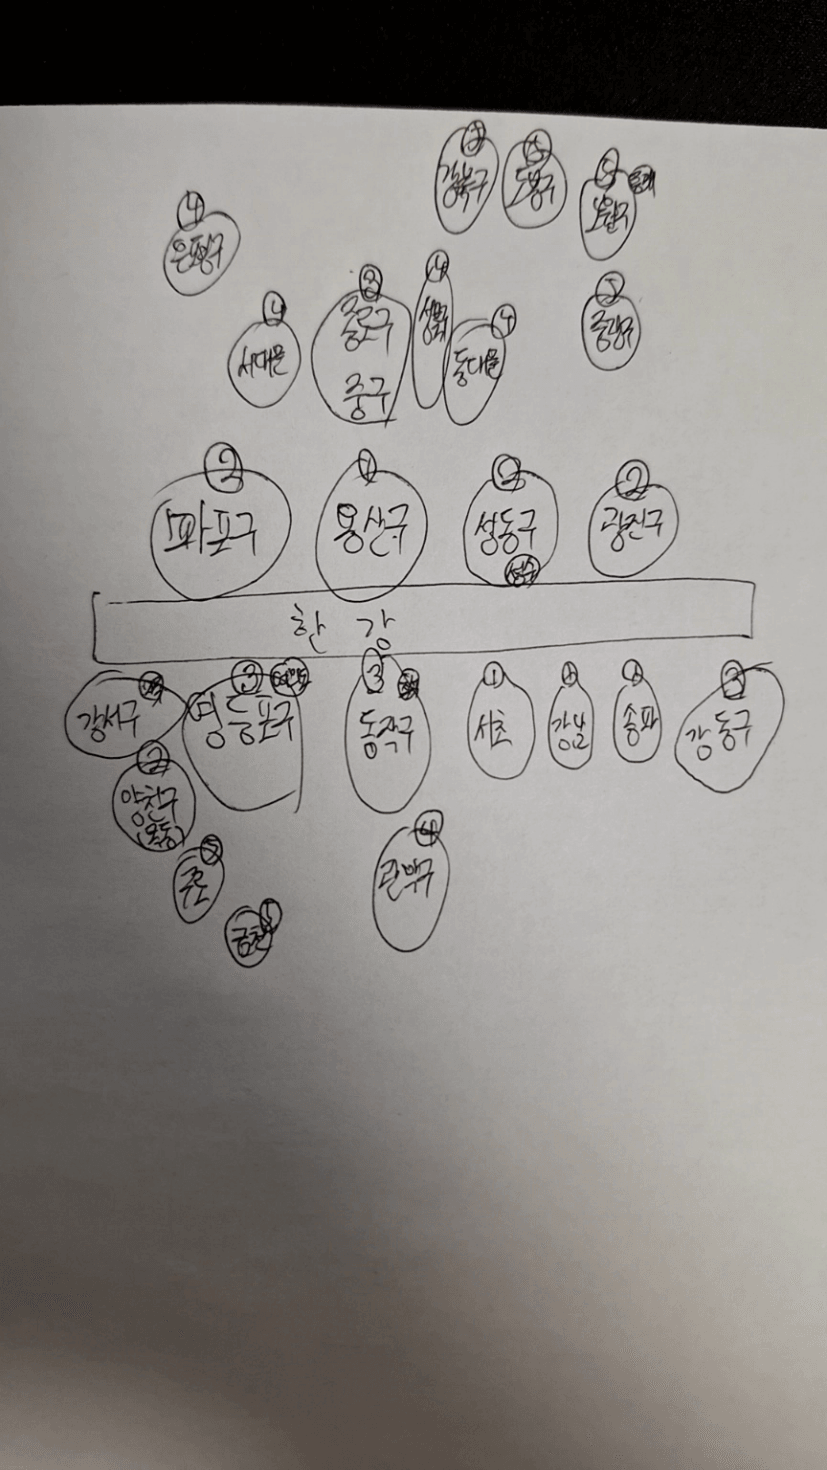 강북구
⑤
도봉구
⑤
노원구
④
은평구
④
서대문
③
종로구
중구
④
성북
④
동대문
⑤
중랑구
②
마포구
①
용산구
②
성동구
성수
②
광진구
한강
강서구
③
영등포구
여의도
③
동작구
①
서초
①
강남
①
송파
③
강동구
②
양천구
(목동)
⑤
구로
금천
④
관악구